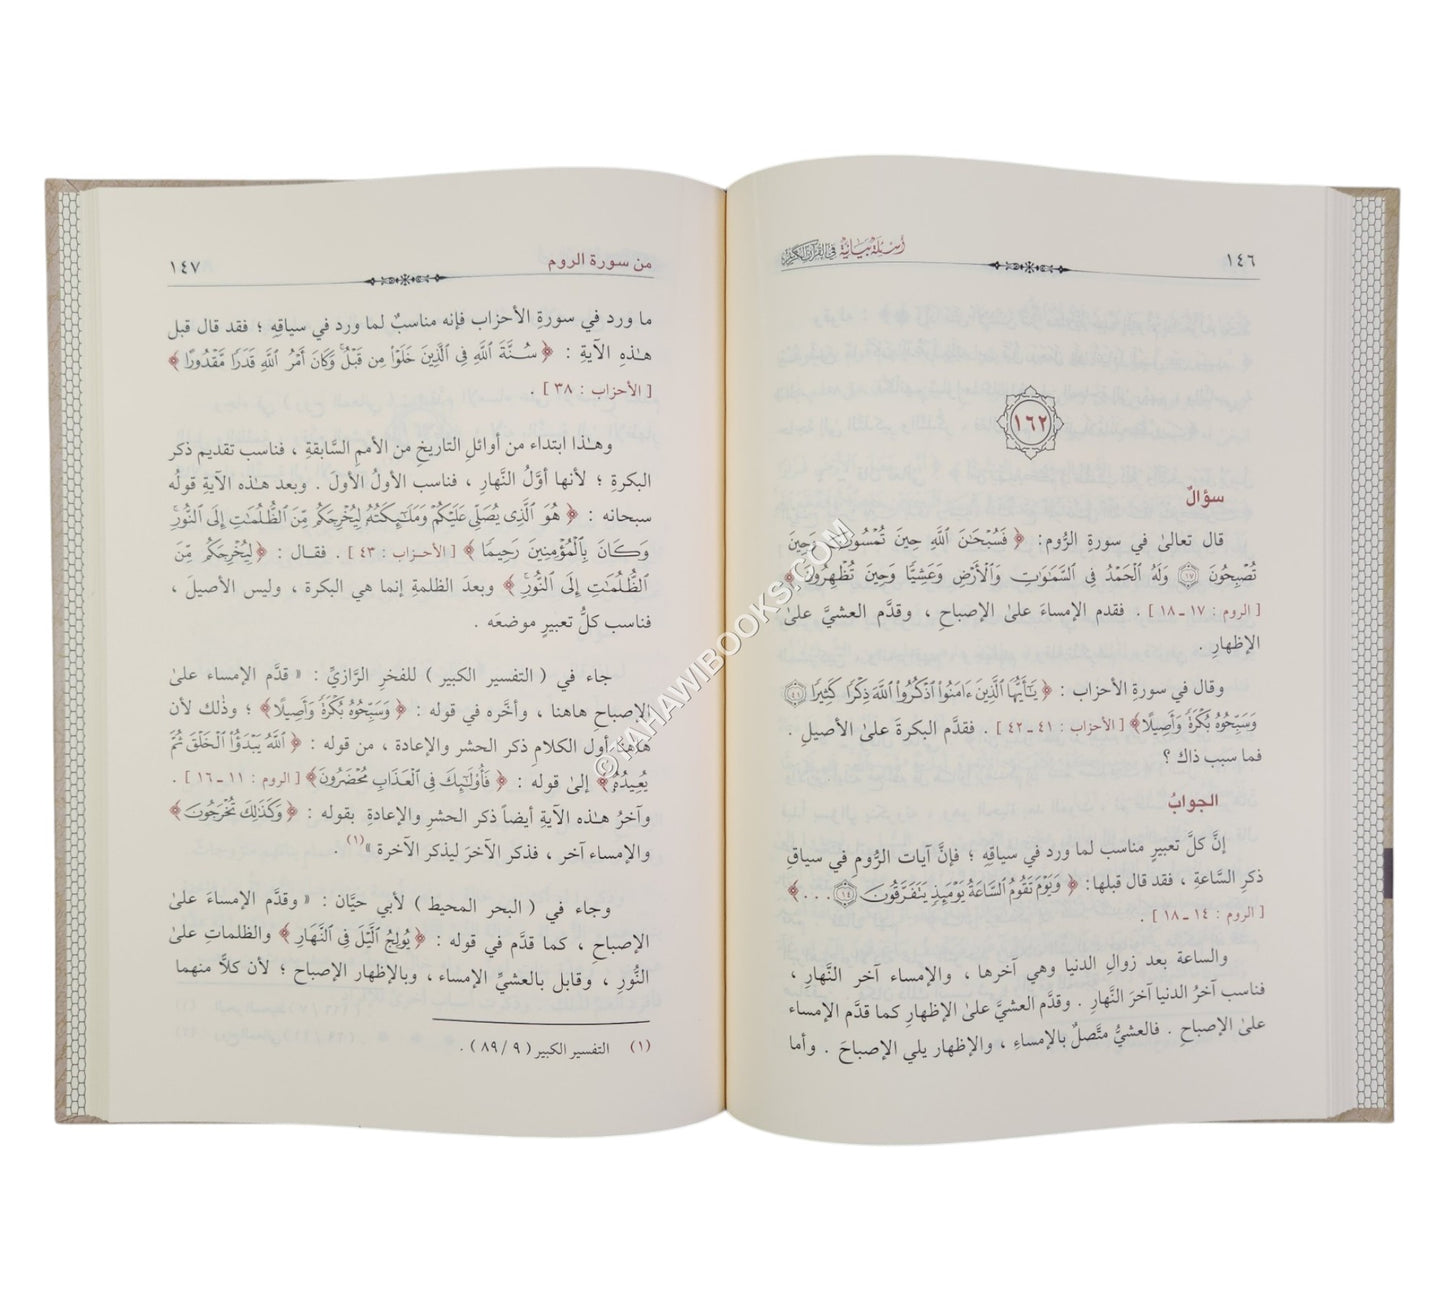 ١٤٦
أسئلة بيانية في القرآن الكريم
١٦٢
سؤالٌ
قال تعالىٰ في سورةِ الرُّوم: ﴿ فَسُبْحَٰنَ ٱللَّهِ حِينَ تُمْسُونَ وَحِينَ
تُصْبِحُونَ ١٧ وَلَهُ ٱلْحَمْدُ فِى ٱلسَّمَٰوَٰتِ وَٱلْأَرْضِ وَعَشِيًّا وَحِينَ تُظْهِرُونَ ﴾
[ الروم : ١٧ - ١٨ ] . فقدم الإمساءَ علىٰ الإصباحِ ، وقدَّم العشيَّ علىٰ
الإظهارِ .
وقال في سورةِ الأحزاب : ﴿ يَٰٓأَيُّهَا ٱلَّذِينَ ءَامَنُوا۟ ٱذْكُرُوا۟ ٱللَّهَ ذِكْرًا كَثِيرًا ٤١
وَسَبِّحُوهُ بُكْرَةً وَأَصِيلًا ﴾ [ الأحزاب : ٤١ - ٤٢ ] . فقدَّم البكرةَ علىٰ الأصيلِ .
فما سبب ذاك ؟
الجوابُ
إنَّ كلَّ تعبيرٍ مناسب لما ورد في سياقِهِ ؛ فإنَّ آيات الرُّوم في سياقِ
ذكرِ السَّاعةِ ، فقد قال قبلها: ﴿ وَيَوْمَ تَقُومُ ٱلسَّاعَةُ يَوْمَئِذٍ يَتَفَرَّقُونَ ١٤ . . . ﴾
[ الروم : ١٤ - ١٨ ] .
والساعة بعد زوالِ الدنيا وهي آخرها ، والإمساء آخر النَّهارِ ،
فناسب آخرُ الدنيا آخرَ النَّهارِ . وقدَّم العشيَّ علىٰ الإظهارِ كما قدَّم الإمساء
علىٰ الإصباحِ . فالعشيُّ متَّصلٌ بالإمساءِ ، والإظهار يلي الإصباحَ . وأما
من سورة الروم
١٤٧
ما ورد في سورةِ الأحزاب فإنه مناسبٌ لما ورد في سياقِهِ ؛ فقد قال قبل
هٰذهِ الآيةِ : ﴿ سُنَّةَ ٱللَّهِ فِى ٱلَّذِينَ خَلَوْا۟ مِن قَبْلُ ۚ وَكَانَ أَمْرُ ٱللَّهِ قَدَرًا مَّقْدُورًا ﴾
[ الأحزاب : ٣٨ ] .
وهٰذا ابتداء من أوائلِ التاريخِ من الأممِ السَّابقةِ ، فناسب تقديم ذكر
البكرةِ ؛ لأنها أوَّلُ النَّهارِ ، فناسب الأولُ الأولَ . وبعد هٰذه الآيةِ قولُه
سبحانه : ﴿ هُوَ ٱلَّذِى يُصَلِّى عَلَيْكُمْ وَمَلَٰٓئِكَتُهُۥ لِيُخْرِجَكُم مِّنَ ٱلظُّلُمَٰتِ إِلَى ٱلنُّورِ ۚ
وَكَانَ بِٱلْمُؤْمِنِينَ رَحِيمًا ﴾ [ الأحزاب : ٤٣ ] . فقال : ﴿ لِيُخْرِجَكُم مِّنَ
ٱلظُّلُمَٰتِ إِلَى ٱلنُّورِ ۚ ﴾ وبعدَ الظلمةِ إنما هي البكرة ، وليس الأصيل ،
فناسب كلُّ تعبيرٍ موضعَه .
جاء في ( التفسير الكبير ) للفخرِ الرَّازيِّ : « قدَّم الإمساء علىٰ
الإصباحِ هاهنا ، وأخَّره في قوله : ﴿ وَسَبِّحُوهُ بُكْرَةً وَأَصِيلًا ﴾ ؛ وذٰلك لأن
هاهنا أول الكلامِ ذكر الحشر والإعادة ، من قوله : ﴿ ٱللَّهُ يَبْدَؤُا۟ ٱلْخَلْقَ ثُمَّ
يُعِيدُهُۥ ﴾ إلىٰ قوله : ﴿ فَأُو۟لَٰٓئِكَ فِى ٱلْعَذَابِ مُحْضَرُونَ ﴾ [ الروم : ١١ - ١٦ ] .
وآخرُ هٰذه الآيةِ أيضاً ذكر الحشرِ والإعادةِ بقوله : ﴿ وَكَذَٰلِكَ تُخْرَجُونَ ﴾
والإمساء آخر ، فذكر الآخرَ ليذكر الآخرة »(١) .
وجاء في ( البحر المحيط ) لأبي حيَّان : « وقدَّم الإمساءَ علىٰ
الإصباحِ ، كما قدَّم في قوله : ﴿ يُولِجُ ٱلَّيْلَ فِى ٱلنَّهَارِ ﴾ والظلماتِ علىٰ
النُّورِ ، وقابل بالعشيِّ الإمساء ، وبالإظهار الإصباح ؛ لأن كلاًّ منهما
(١) التفسير الكبير ( ٩ / ٨٩ ) .
©TAHAWIBOOKS.COM